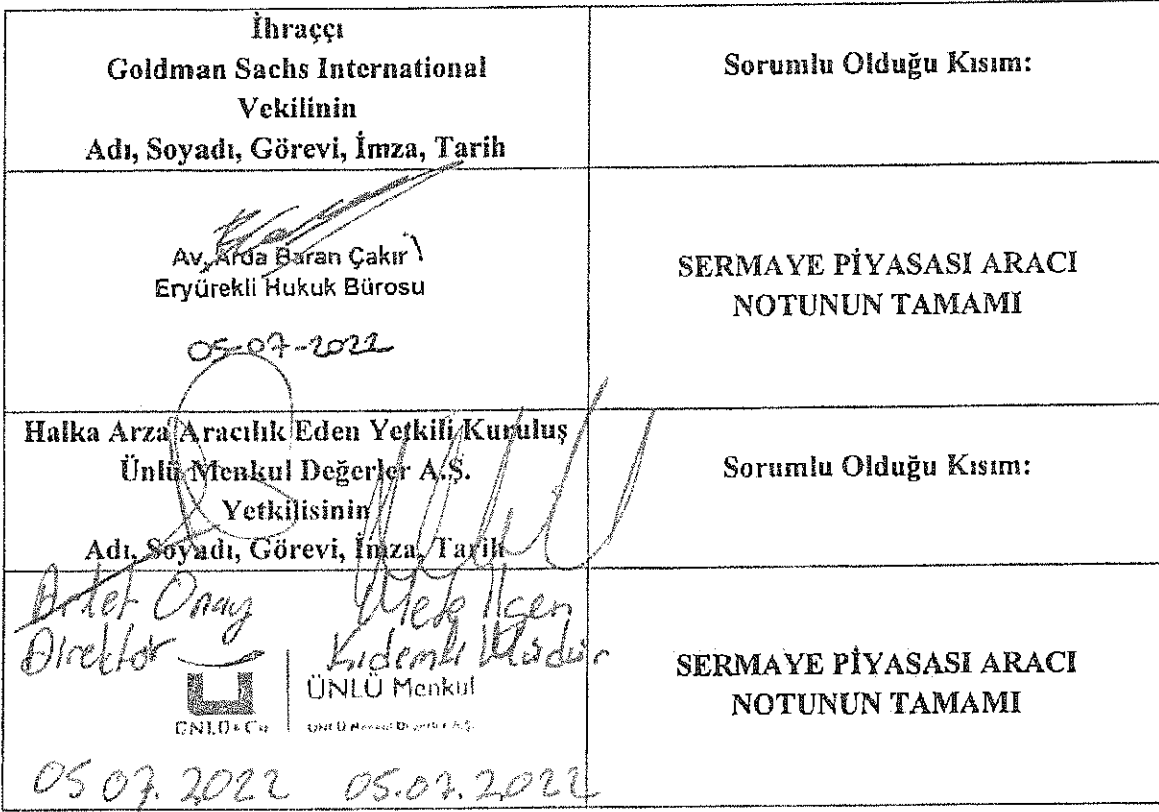 İhraççı
Goldman Sachs International
Vekilinin
Adı, Soyadı, Görevi, İmza, Tarih
Sorumlu Olduğu Kısım:
Av. Arda Baran Çakır
Eryürekli Hukuk Bürosu
05-07-2022
SERMAYE PİYASASI ARACI
NOTUNUN TAMAMI
Halka Arza Aracılık Eden Yetkili Kuruluş
Ünlü Menkul Değerler A.Ş.
Yetkilisinin
Adı, Soyadı, Görevi, İmza, Tarih
Sorumlu Olduğu Kısım:
Onay
Direktör
Kıdemli Müdür
ÜNLÜ Menkul
ÜNLÜ & Co
ÜNLÜ Menkul Değerler A.Ş.
05 07. 2022
05.07.2022
SERMAYE PİYASASI ARACI
NOTUNUN TAMAMI